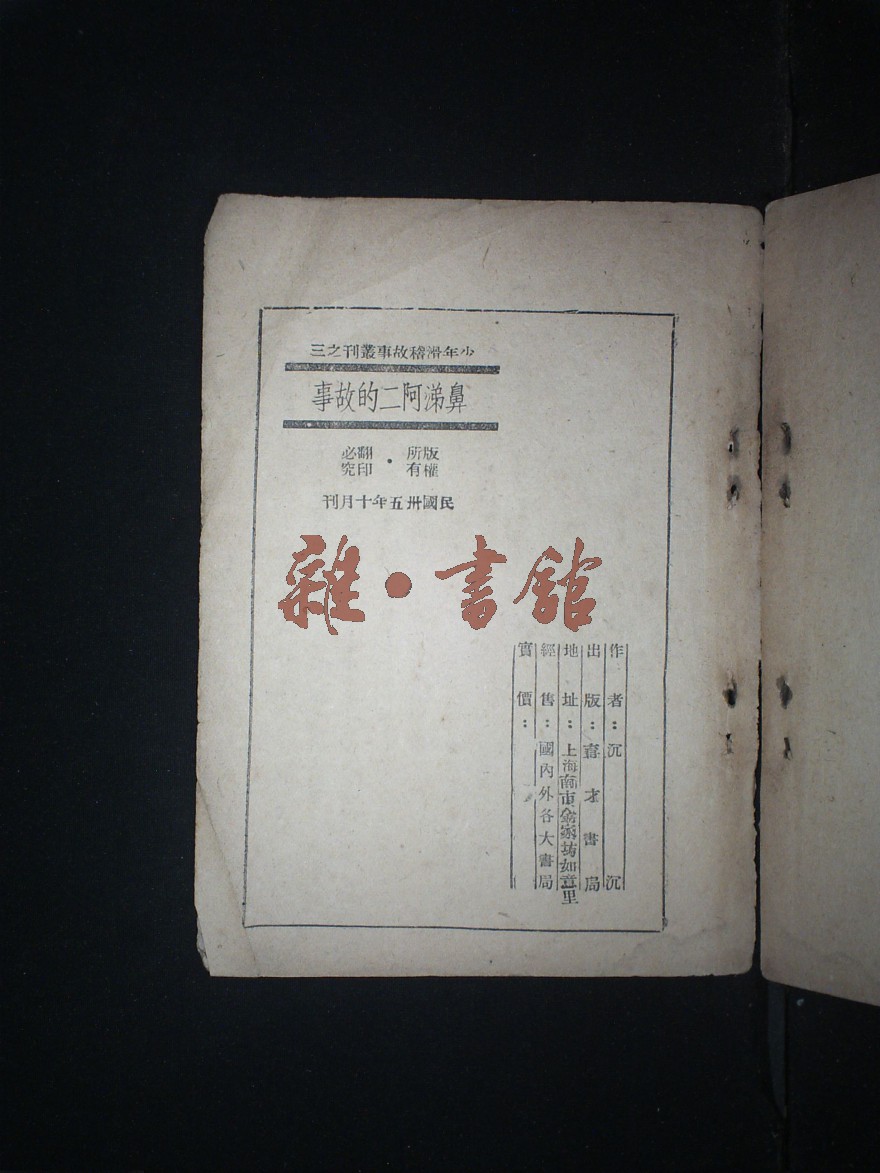 少年滑稽故事叢刊之三
鼻涕阿二的故事
版權所有・翻印必究
民國卅五年十月刊
雜・書館
作者：沉沉
出版：育才書局
地址：上海南市金家坊如意里
經售：國內外各大書局
實價：